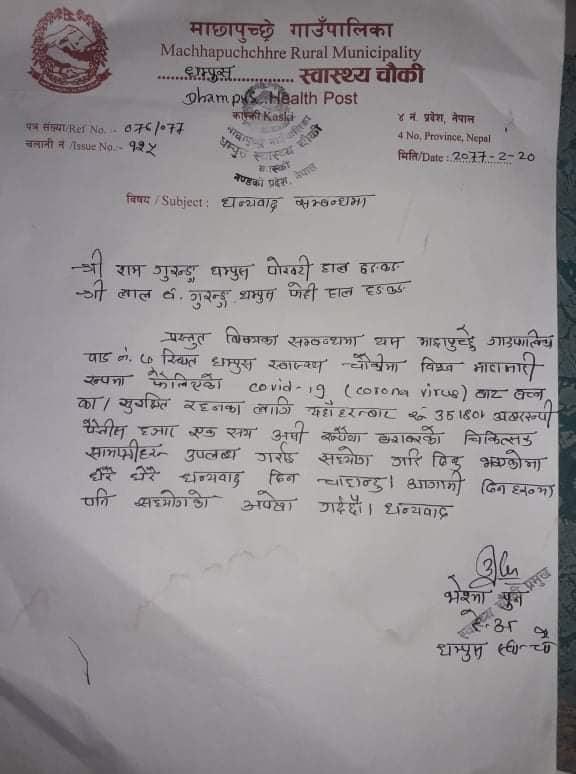 माछापुच्छ्रे गाउँपालिका
Machhapuchchhre Rural Municipality
धम्पुस स्वास्थ्य चौकी
Dhampus Health Post
कास्की Kaski
पत्र संख्या/Ref No. :- ०७६/०७७
४ नं. प्रदेश, नेपाल
चलानी नं /Issue No.:- १२५
4 No. Province, Nepal
धम्पुस स्वास्थ्य चौकी
कास्की
गण्डकी प्रदेश, नेपाल
मिति/Date : २०७७-२-२०
विषय / Subject : धन्यवाद सम्बन्धमा
श्री राम गुरुङ्ग धम्पुस पोखरी हाल हङकङ
श्री लाल ब. गुरुङ्ग धम्पुस हाल हङकङ
प्रस्तुत विषयका सम्बन्धमा यस माछापुच्छ्रे गाउपालिका
वाड नं. ७ स्थित धम्पुस स्वास्थ्य चौकीमा विश्व माहामारी
रुपमा फैलिएको covid-19 (corona virus) बाट बच्न
का / सुरक्षित रहनका लागि यहाँहरुबाट रु अक्षरुपी
पैतीस हजार एक सय असी रुपैया बराबरको चिकित्सक
सामग्रीहरु उपलब्ध गराई सहयोग गरि दिनु भएकोमा
धेरै धेरै धन्यवाद दिन चाहान्छु। आगामी दिन हरुमा
पनि सहयोगको अपेक्षा गर्दछौ। धन्यवाद
पुन
स्वास्थ्य चौकी प्रमुख
हे.अ
धम्पुस स्वा. चौ